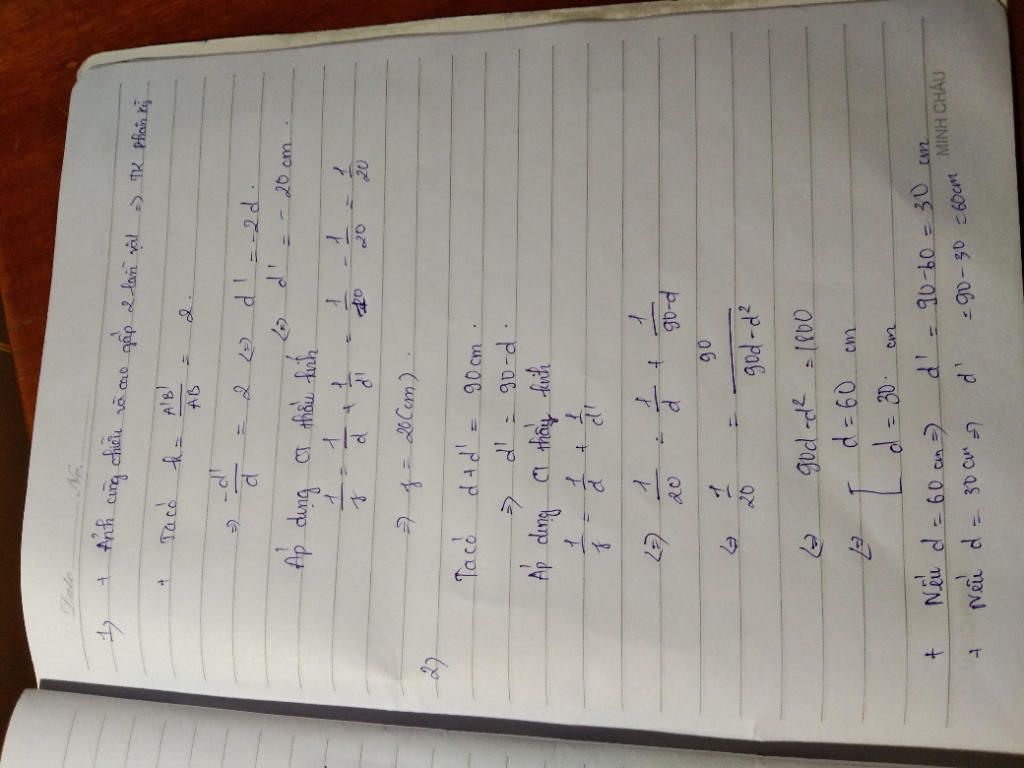 Date No.
1) + Ảnh cùng chiều và cao gấp 2 lần vật => TK phân kỳ
+ Ta có k = A'B'/AB = 2.
=> -d'/d = 2 <=> d' = -2d.
<=> d' = -20 cm.
Áp dụng CT thấu kính
1/f = 1/d + 1/d' = 1/10 - 1/20 = 1/20
=> f = 20(cm)
2)
Ta có d + d' = 90 cm.
=> d' = 90 - d.
Áp dụng CT thấu kính
1/f = 1/d + 1/d'
<=> 1/20 = 1/d + 1/90-d
<=> 1/20 = 90/90d-d²
<=> 90d - d² = 1800
<=> [ d = 60 cm
d = 30. cm
+ Nếu d = 60 cm => d' = 90 - 60 = 30 cm
+ Nếu d = 30 cm => d' = 90 - 30 = 60cm
MINH CHÂU